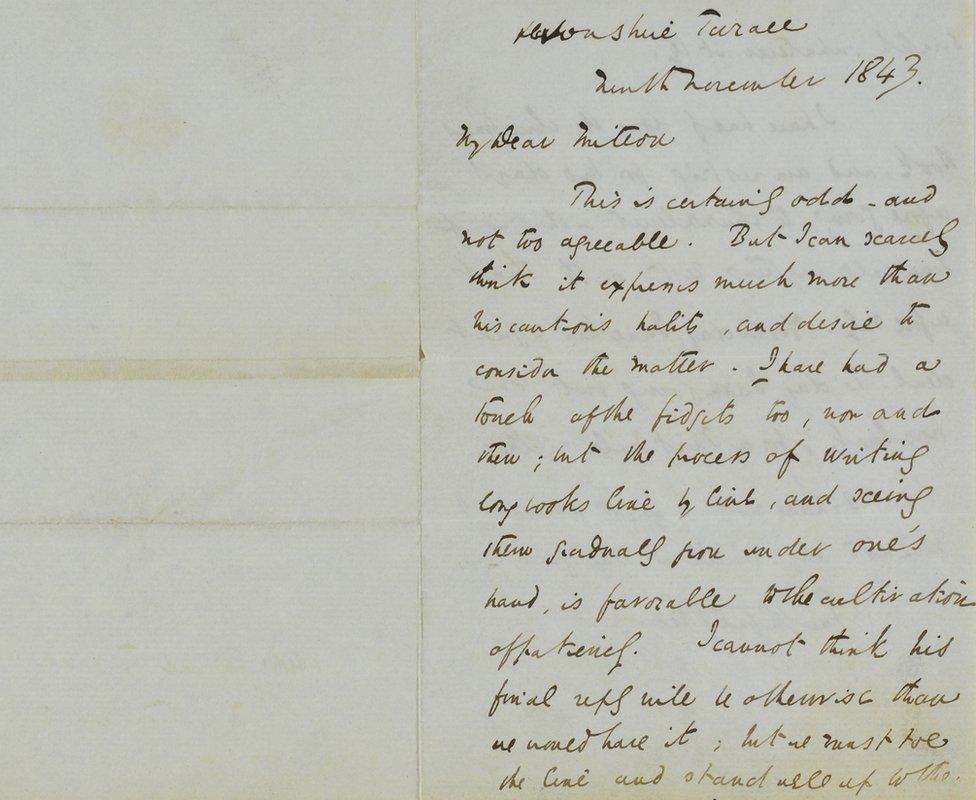 Devonshire Terrace
Ninth November 1843.
My Dear Mitton
This is certainly odd - and
not too agreeable. But I can scarcely
think it expresses much more than
his cautious habits, and desire to
consider the matter. I have had a
touch of the fidgets too, now and
then; but the process of writing
long books line by line, and seeing
them gradually grow under one's
hand, is favorable to the cultivation
of patience. I cannot think his
final reply will be otherwise than
we would have it; but we must toe
the line and stand well up to the